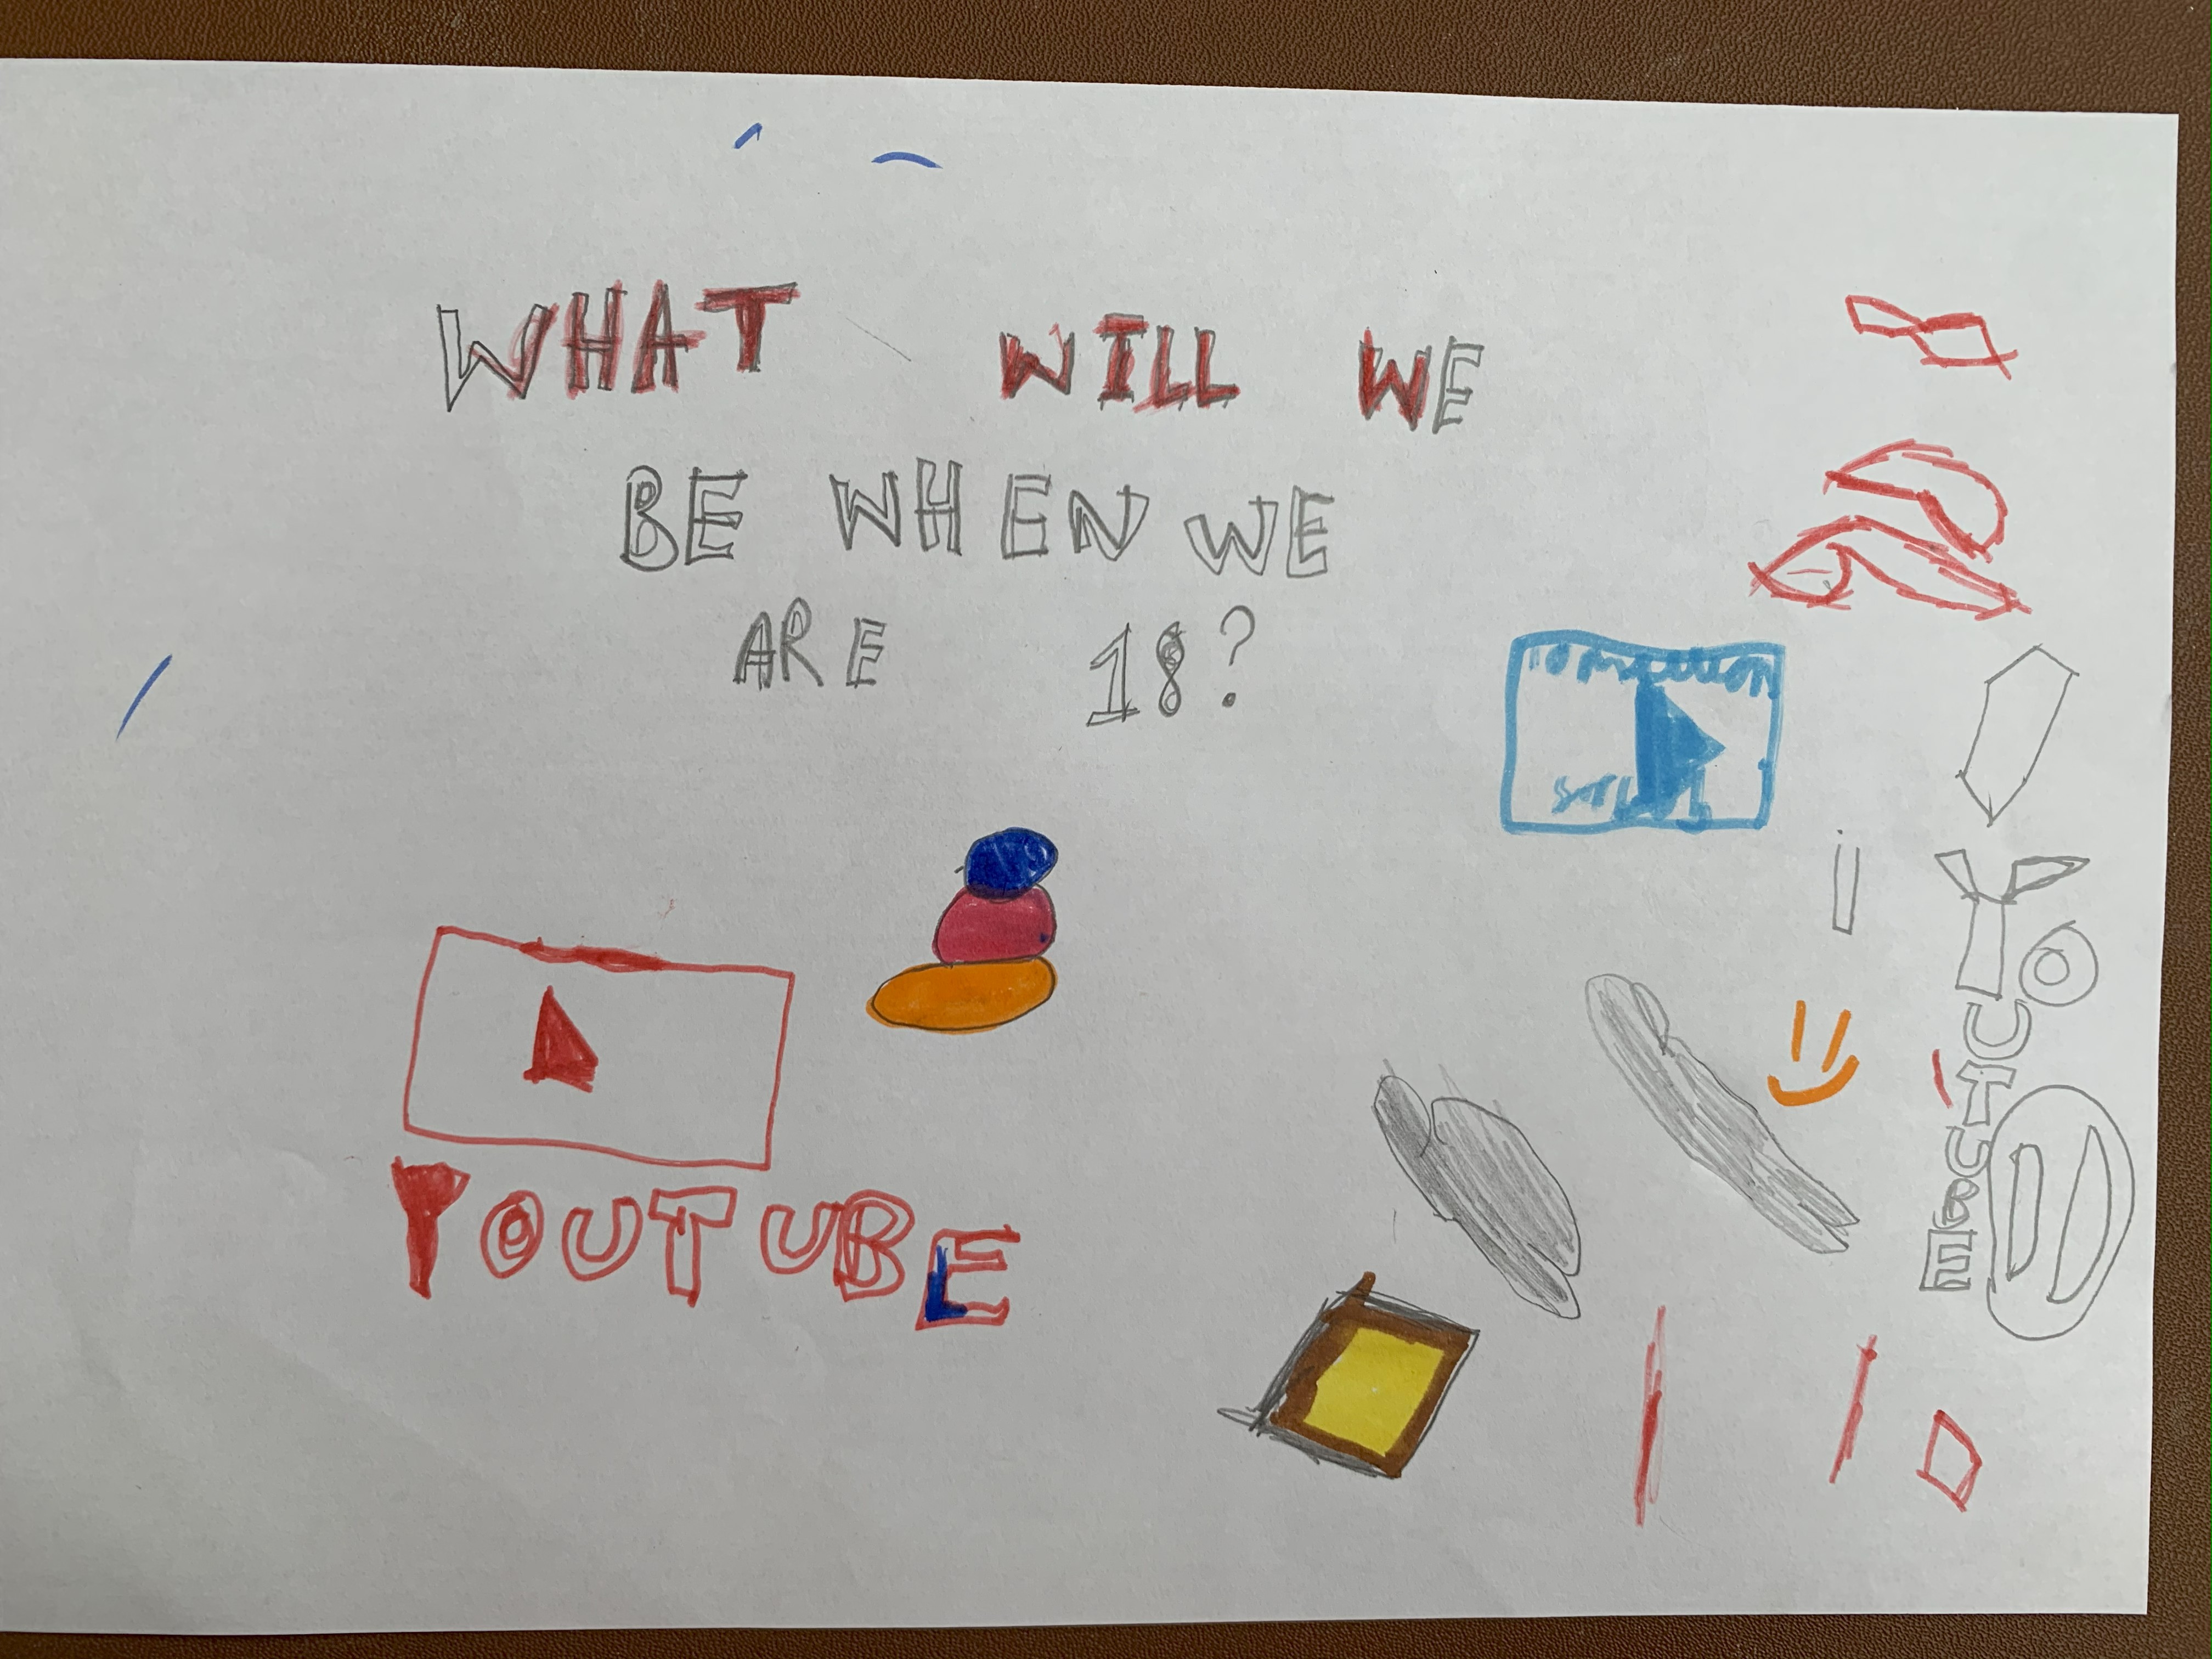 WHAT WILL WE
BE WHEN WE
ARE 18?
YOUTUBE
YOUTUBE